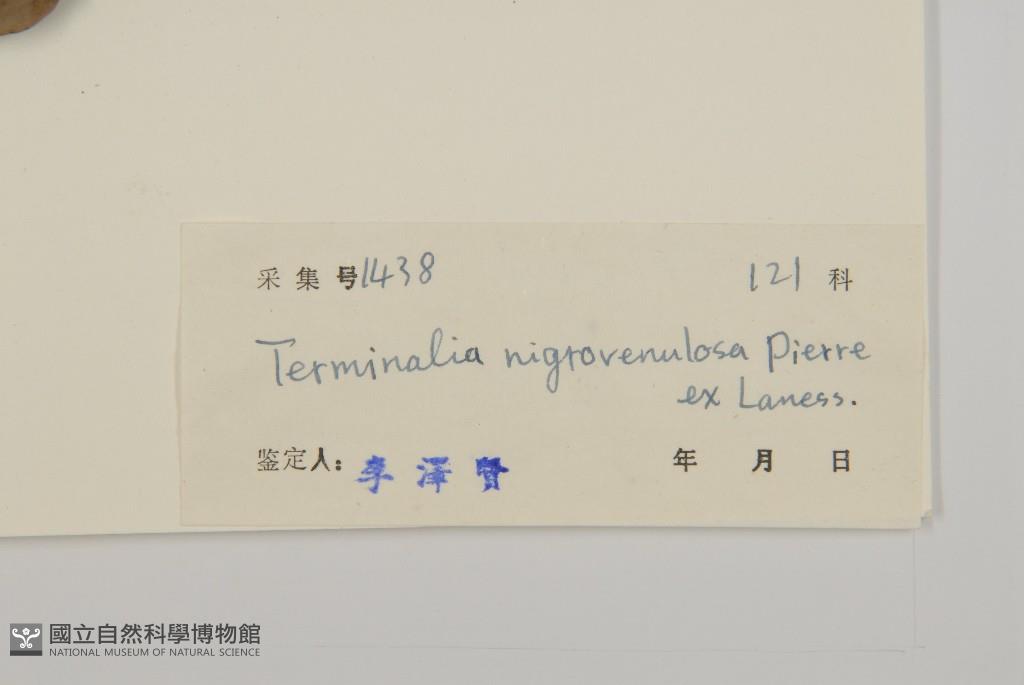 采集号1438 121 科
Terminalia nigrovenulosa Pierre
ex Laness.
鉴定人: 李澤賢 年 月 日
國立自然科學博物館
NATIONAL MUSEUM OF NATURAL SCIENCE